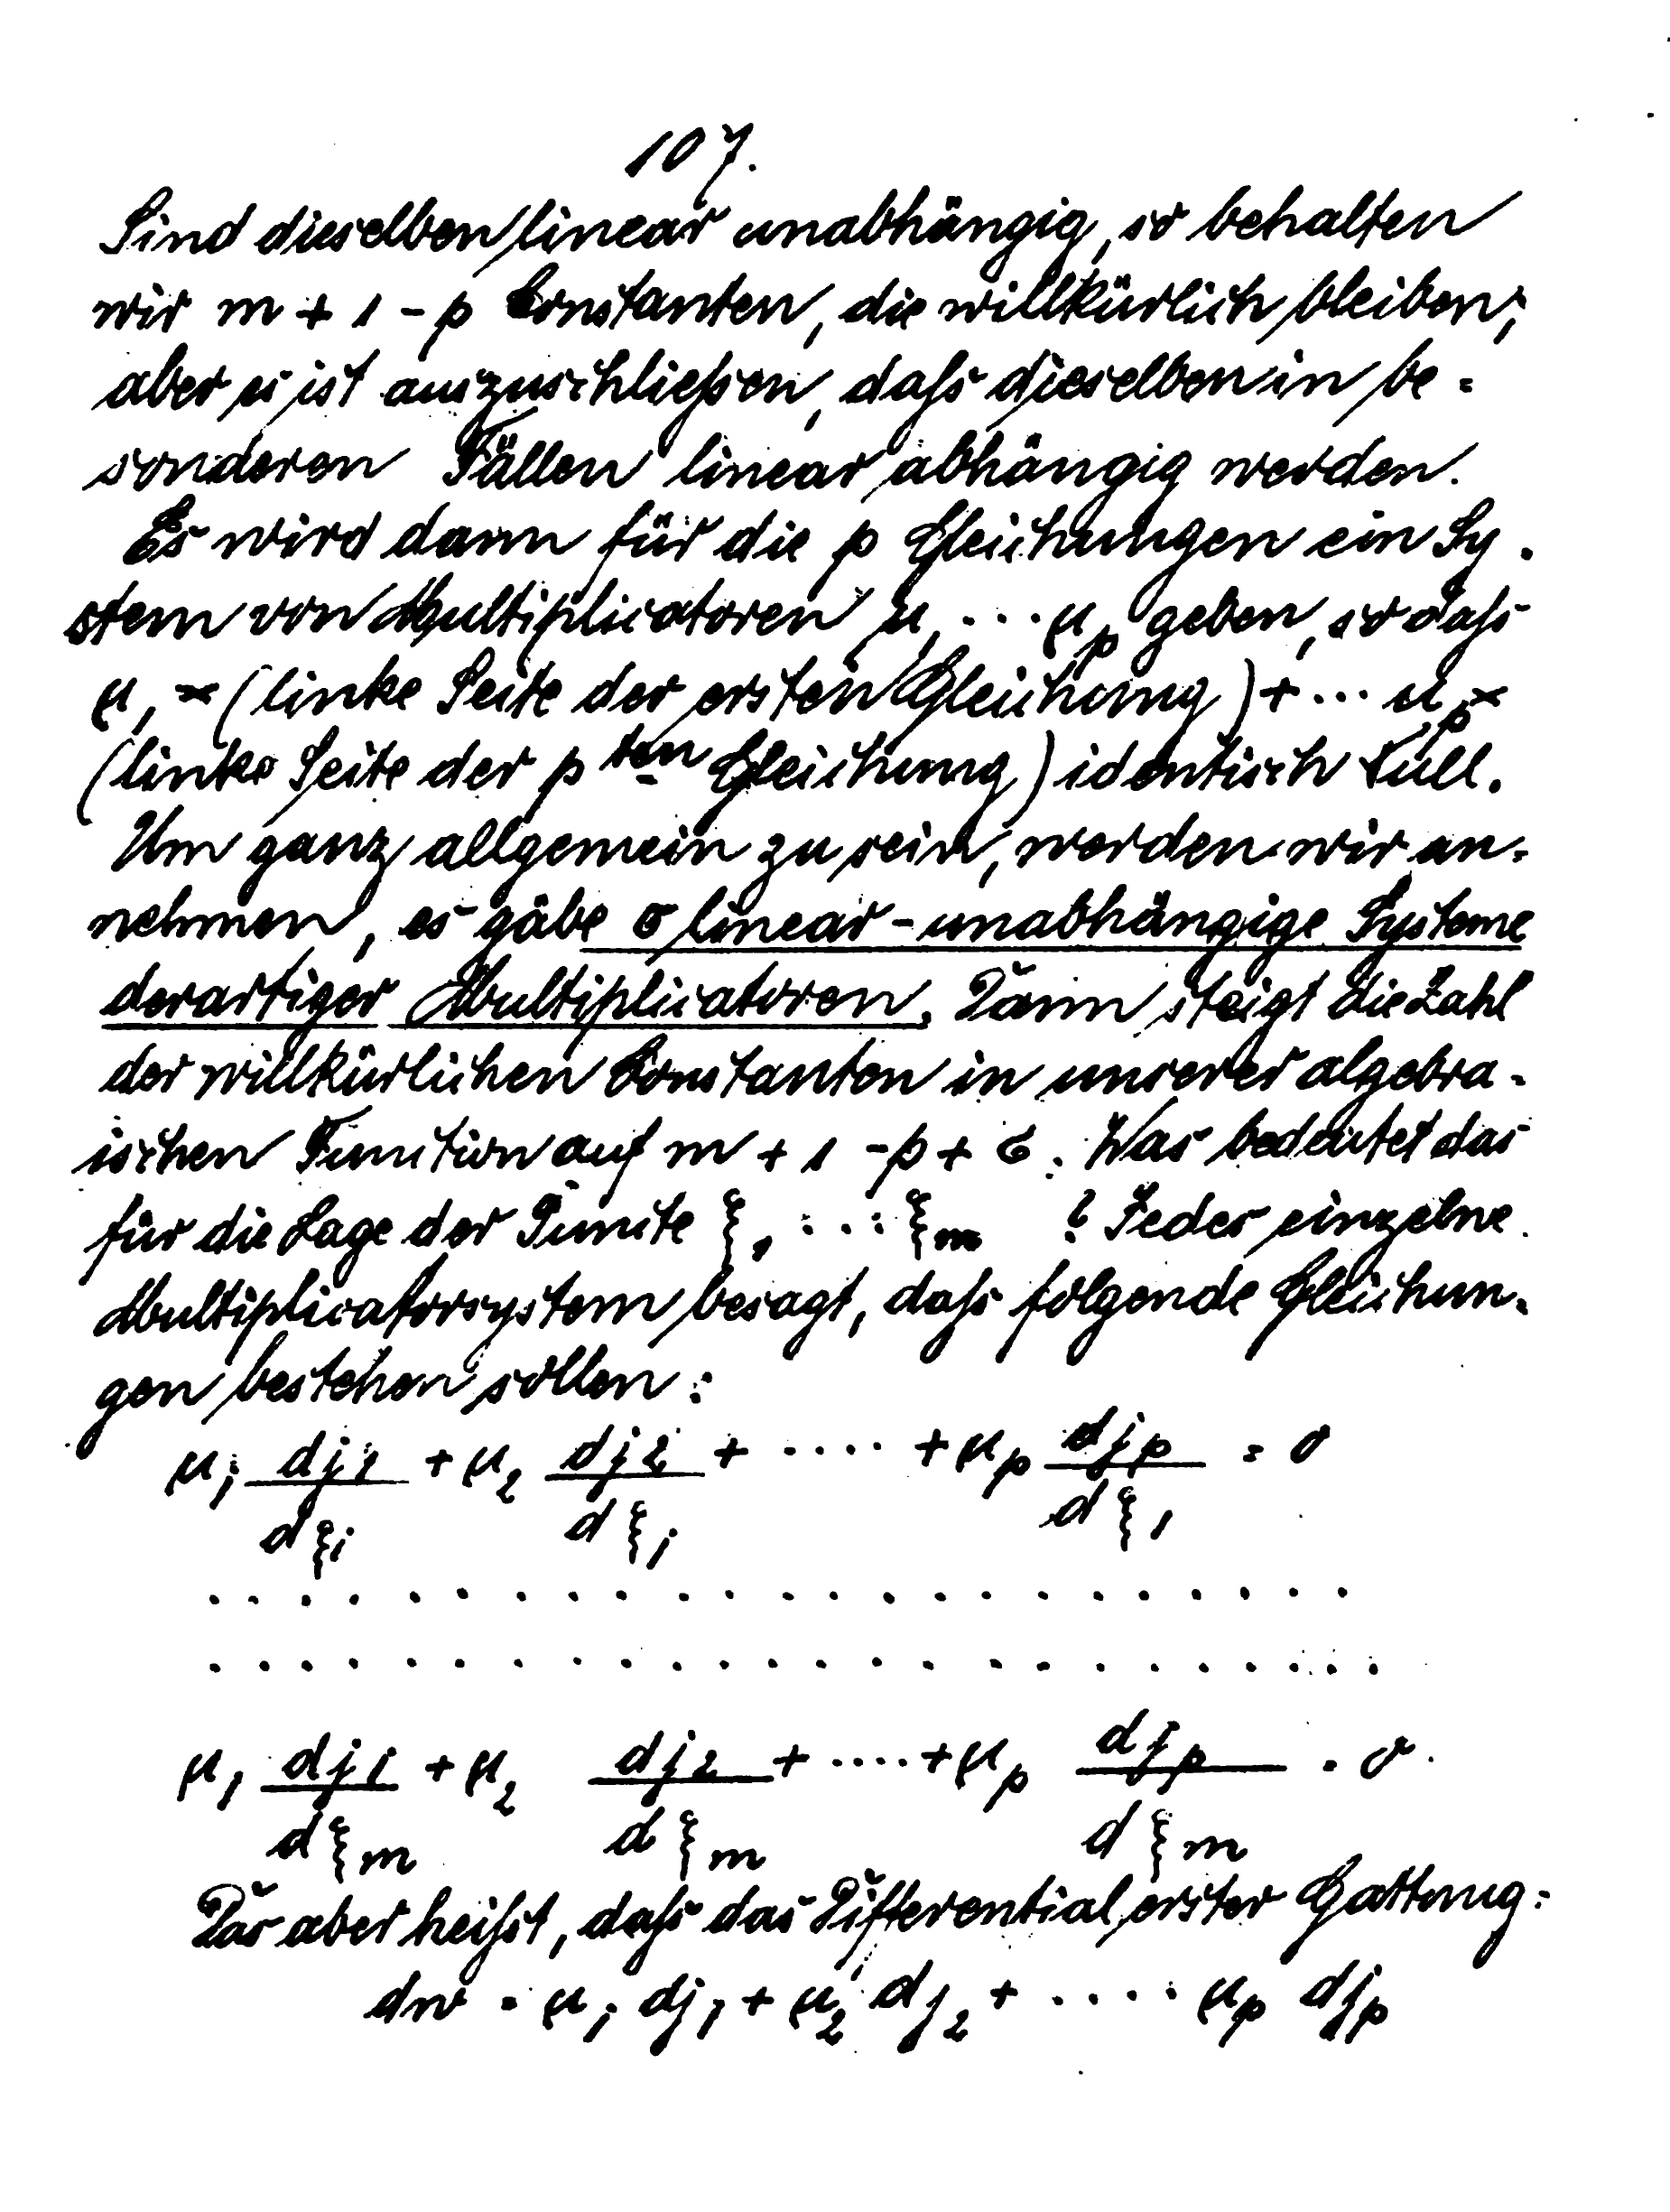 107.
Sind dieselben linear unabhängig, so behalten
wir m + 1 - p Constanten, die willkürlich bleiben;
aber es ist auszuschließen, daß dieselben in be=
sonderen Fällen linear abhängig werden.
Es wird dann für die p Gleichungen ein Sy=
stem von Multiplicatoren μ₁ ... μₚ geben, so daß
μ₁ × (linke Seite der ersten Gleichung) + ... μₚ ×
(linke Seite der p ten Gleichung) identisch Null.
Um ganz allgemein zu sein, werden wir an=
nehmen, es gäbe σ linear-unabhängige Systeme
derartiger Multiplicatoren. Dann steigt die Zahl
der willkürlichen Constanten in unserer algebra=
ischen Function auf m + 1 - p + σ. Was bedeutet das
für die Lage der Puncte ξ₁ ... ξₘ ? Jedes einzelne
Multiplicatorsystem besagt, daß folgende Gleichun=
gen bestehen sollen:
μ₁ dj₁/dξ₁ + μ₂ dj₂/dξ₁ + .... + μₚ djₚ/dξ₁ = 0
. . . . . . . . . . . . . . . . . . . . . .
. . . . . . . . . . . . . . . . . . . . . .
μ₁ dj₁/dξₘ + μ₂ dj₂/dξₘ + .... + μₚ djₚ/dξₘ = 0.
Das aber heißt, daß das Differential erster Gattung:
dw = μ₁ dj₁ + μ₂ dj₂ + .... μₚ djₚ